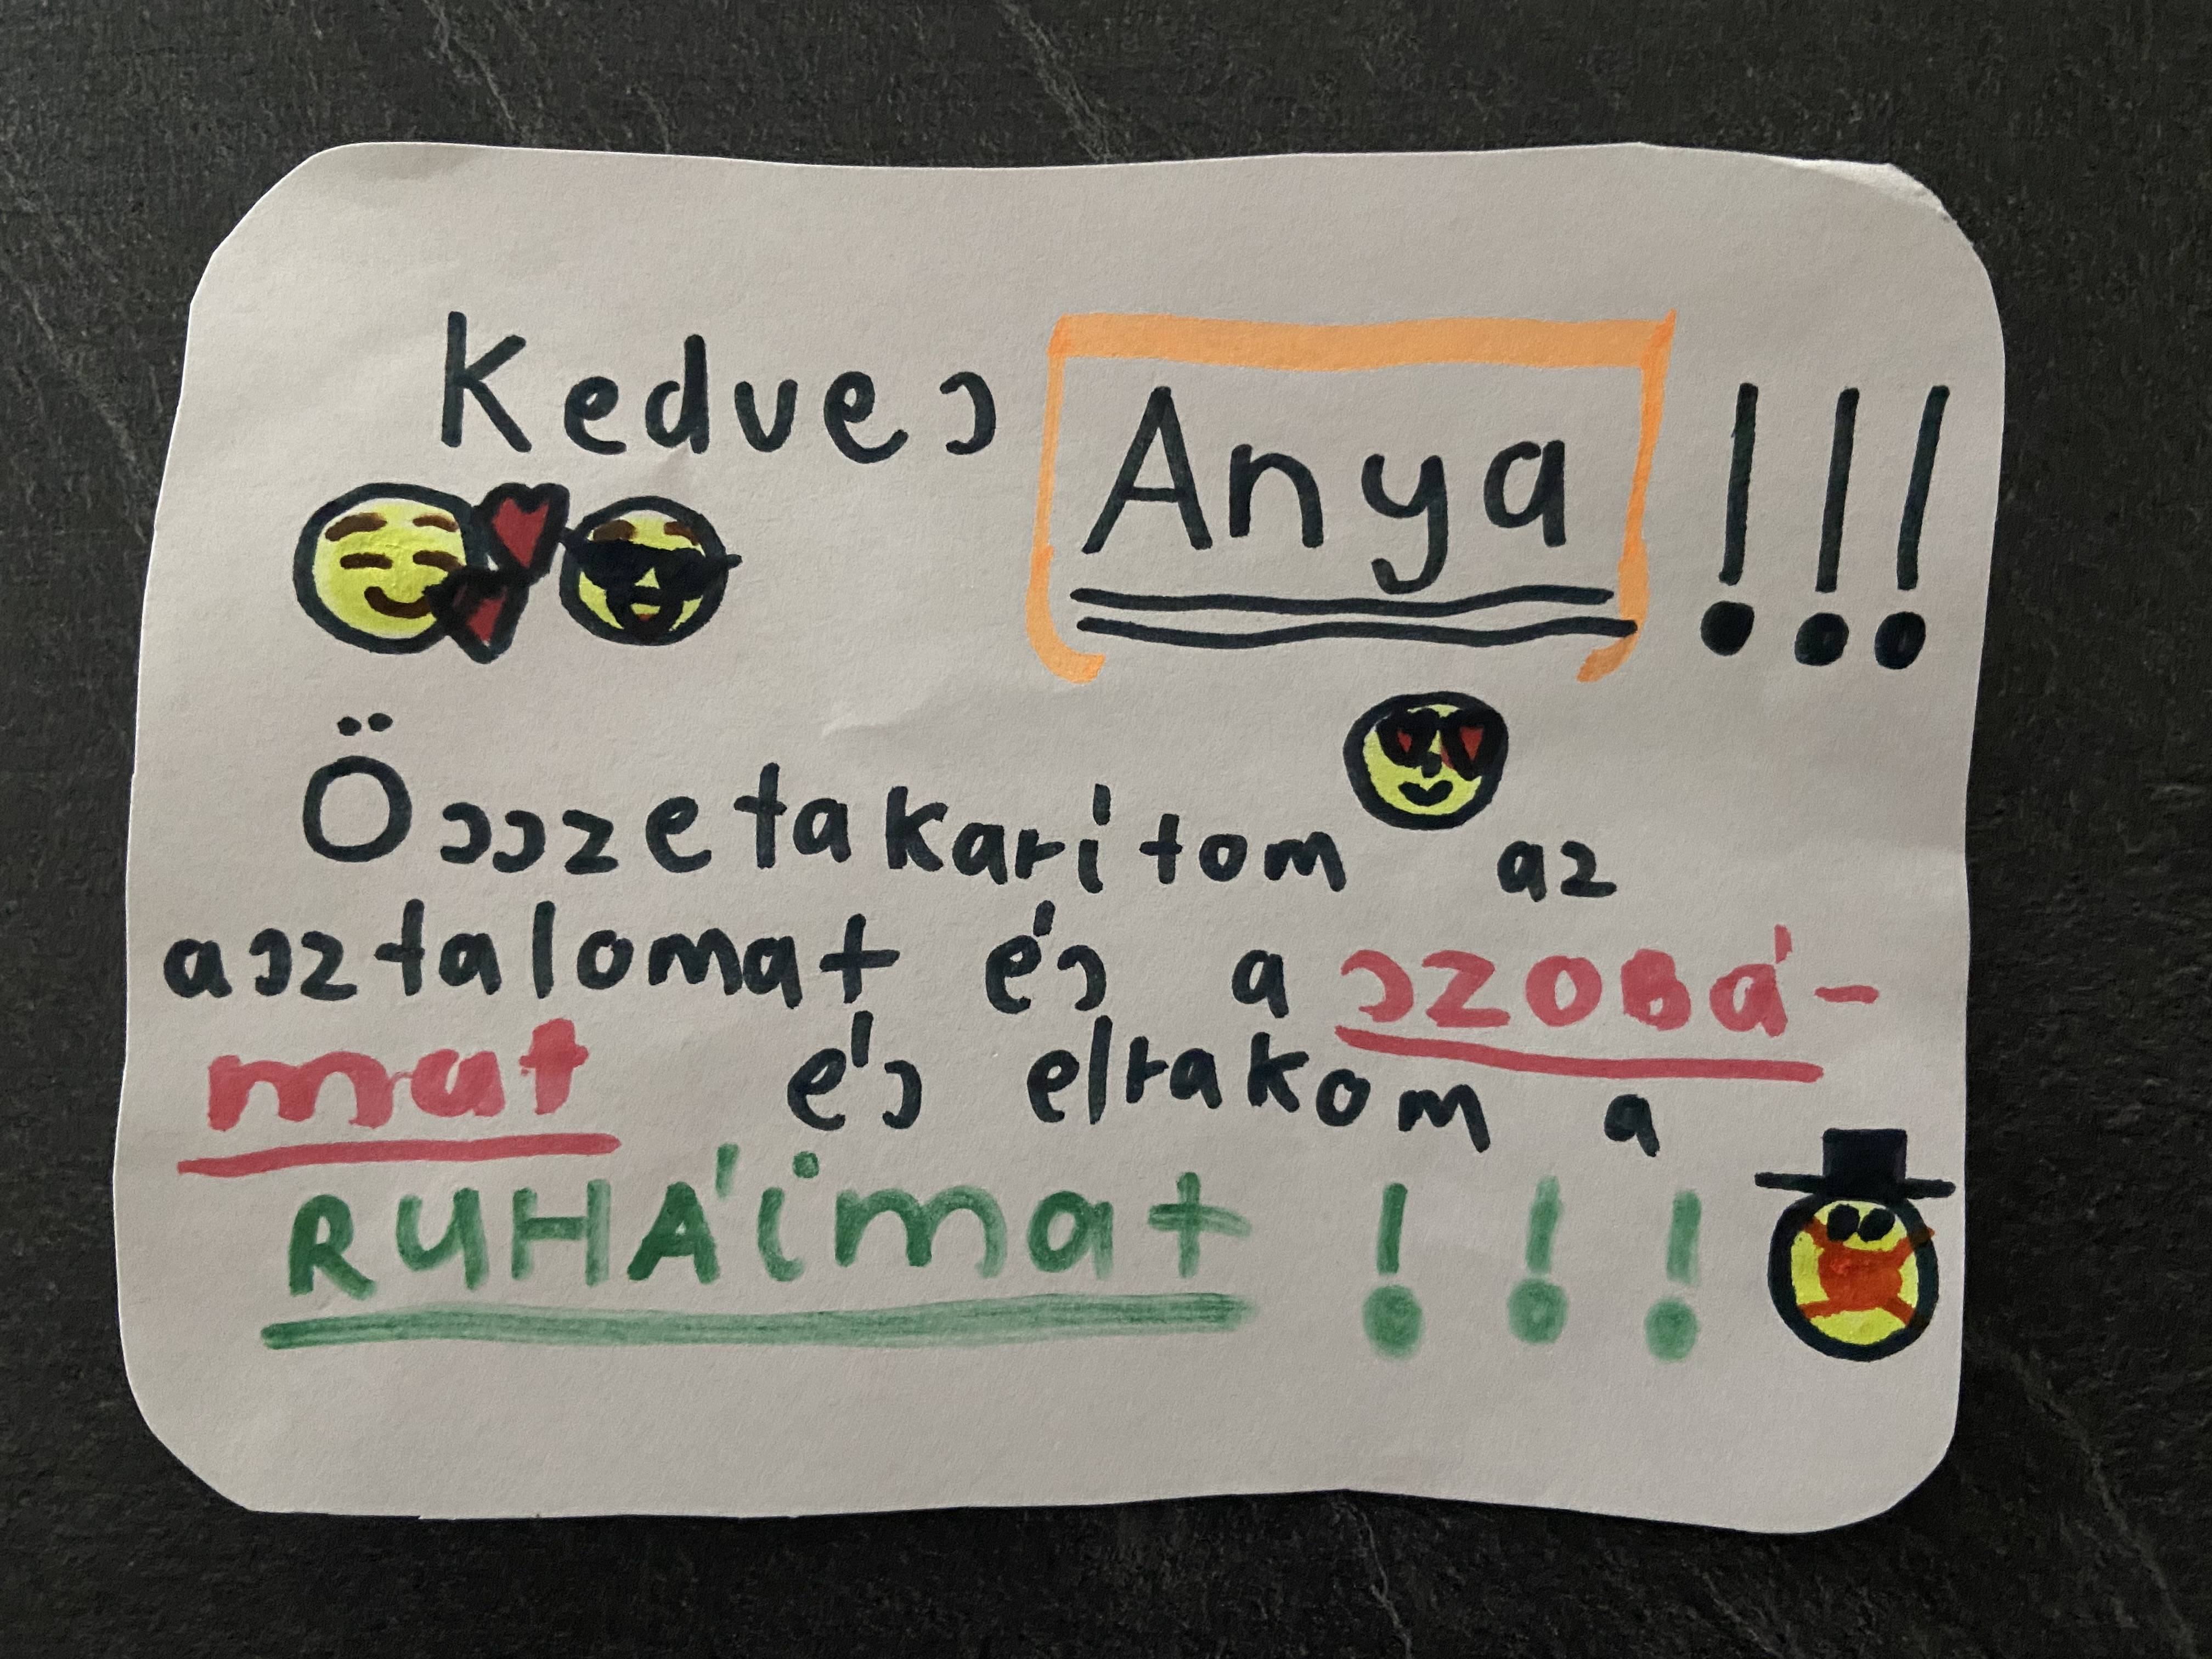 Kedves Anya !!!
Összetakaritom az
asztalomat és a szobá-
mat és elrakom a
RUHÁimat !!!